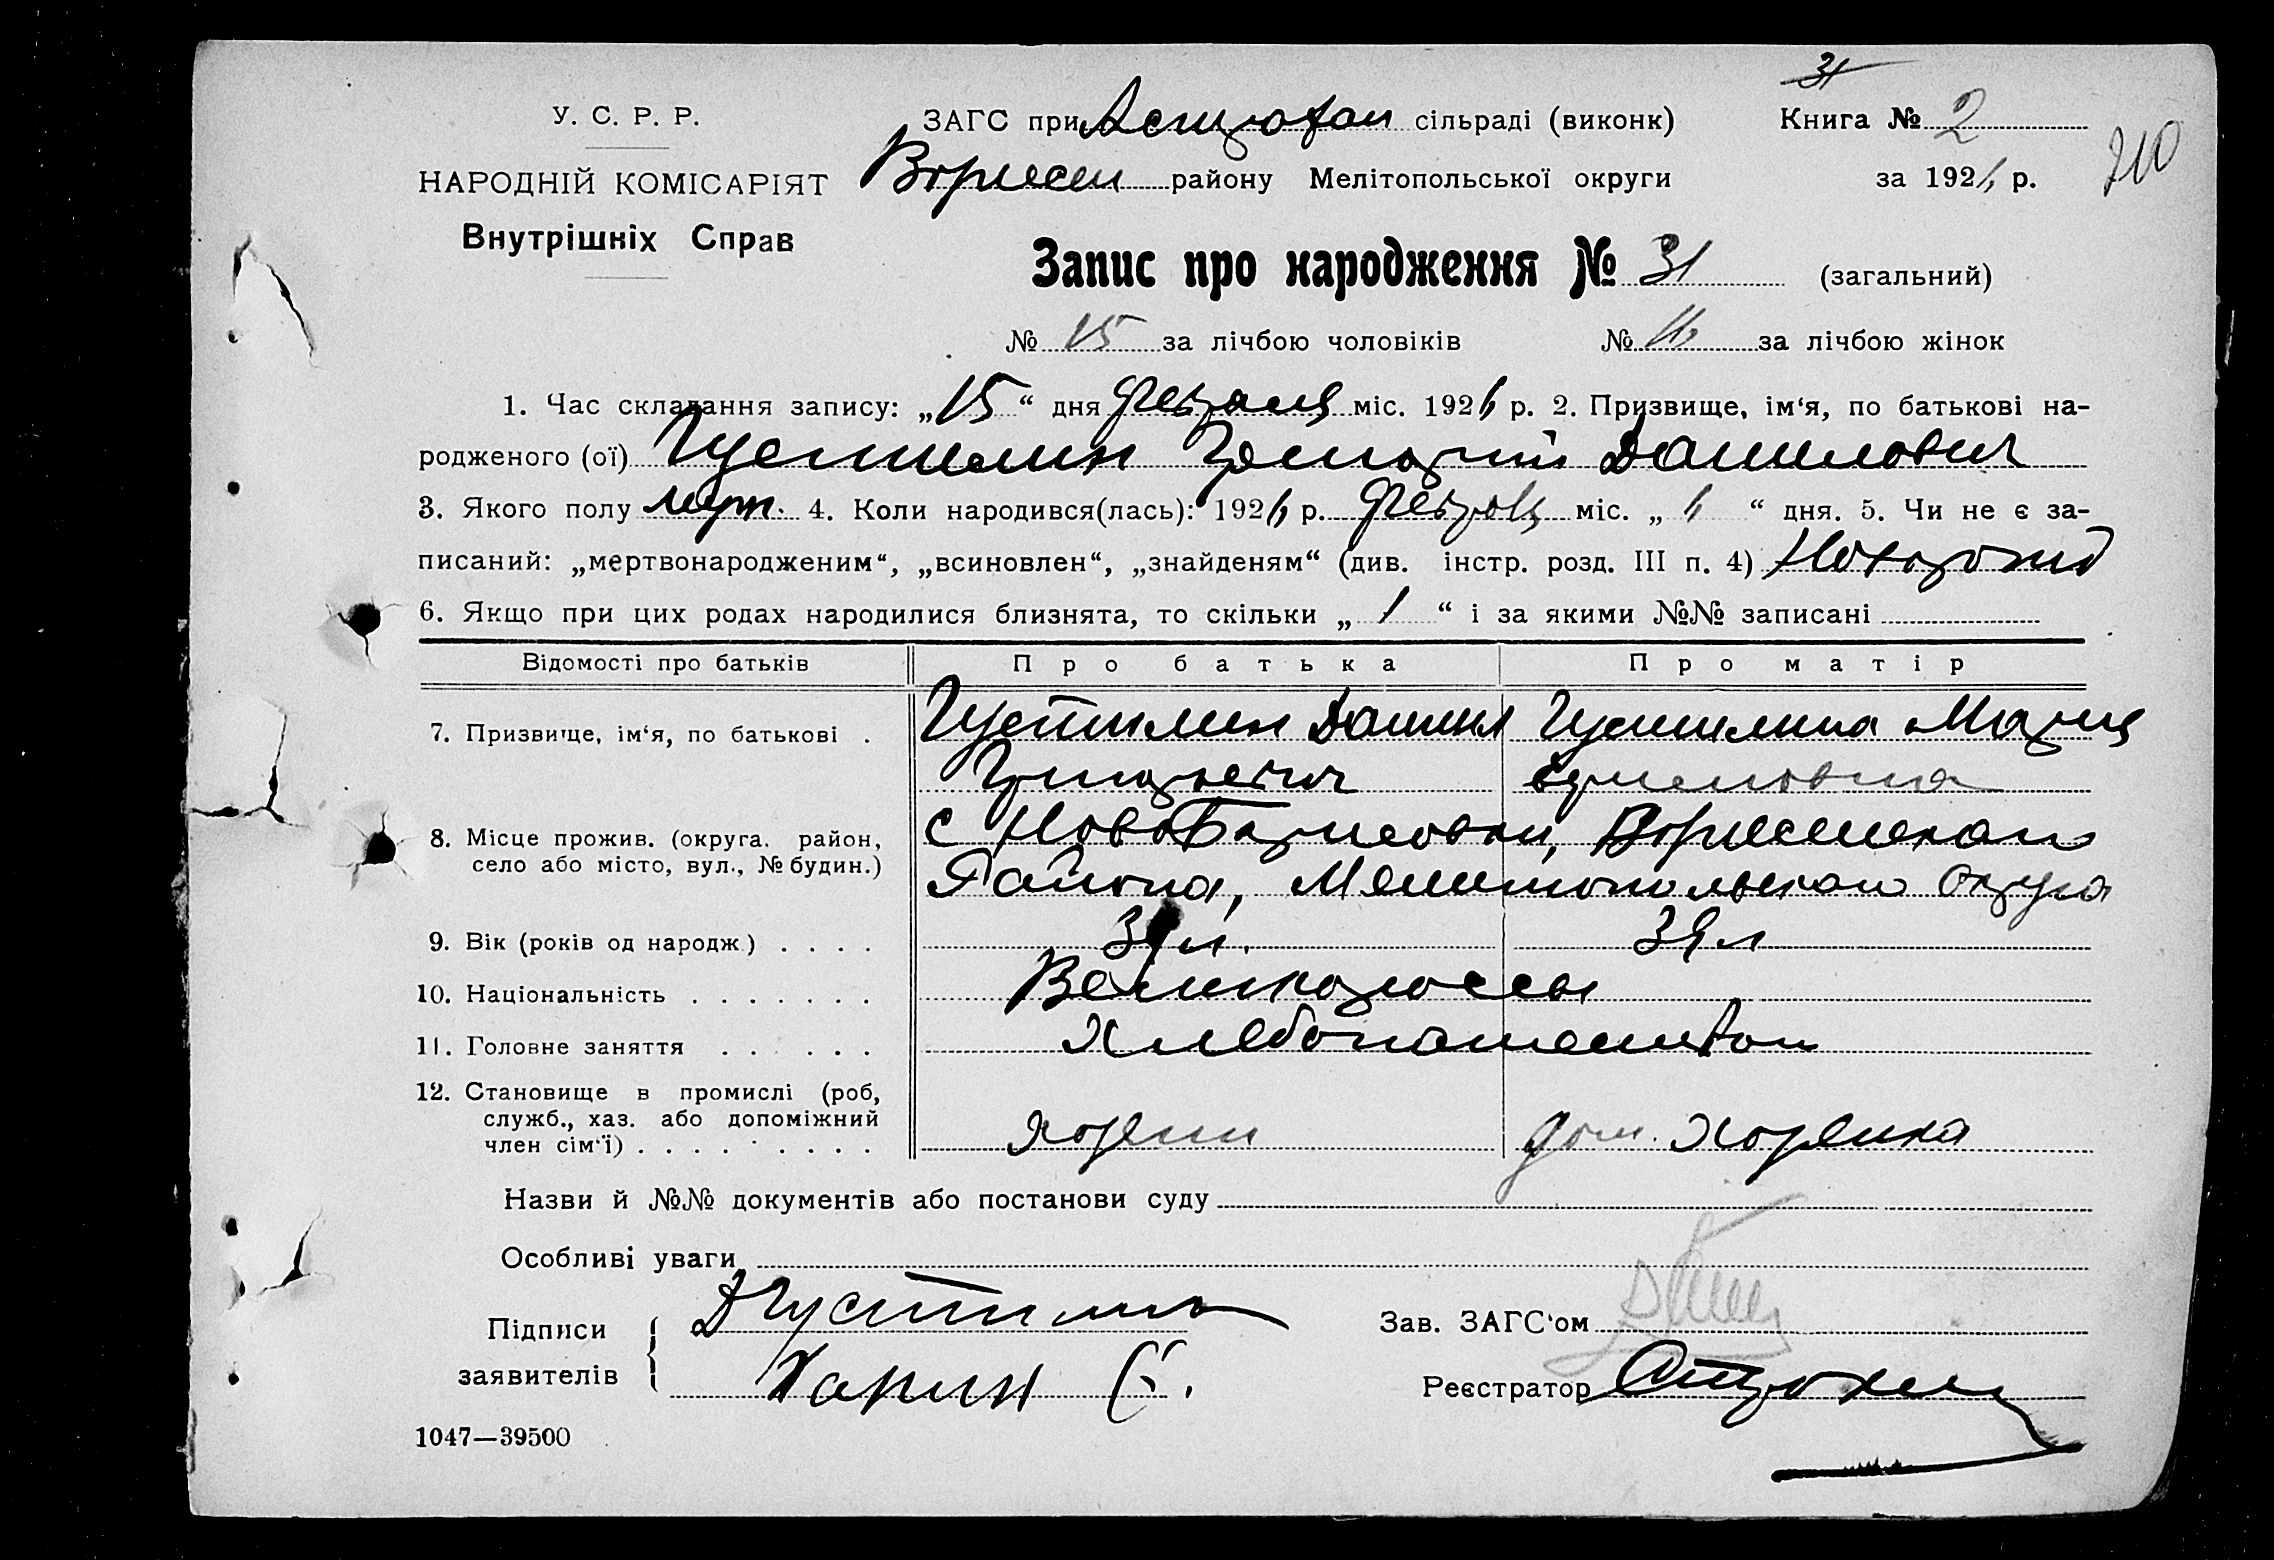 31
У. С. Р. Р. ЗАГС при сільраді (виконк) Книга № 2
210
НАРОДНІЙ КОМІСАРІЯТ району Мелітопольської округи за 1926 р.
Внутрішніх Справ
Запис про народження № 31 (загальний)
№ 15 за лічбою чоловіків № 16 за лічбою жінок
1. Час складання запису: „15“ дня февраля міс. 1926 р. 2. Призвище, ім‘я, по батькові на-
родженого (ої) Густилин Григорий Данилович
3. Якого полу муж. 4. Коли народився(лась): 1926 р. февраля міс. „ “ дня. 5. Чи не є за-
писаний: „мертвонародженим“, „всиновлен“, „знайденям“ (див. інстр. розд. III п. 4)
6. Якщо при цих родах народилися близнята, то скільки „1“ і за якими №№ записані
Відомості про батьків Про батька Про матір
7. Призвище, ім‘я, по батькові . Густилин Данил Густилина Мария
Григорьевич Ефимовна
8. Місце прожив. (округа, район, с
село або місто, вул., № будин.) Района, Мелитопольскаго Округа
9. Вік (років од народж.) . . . . 39 л. 39 л
10. Національність . . . . . . . Великороссы
11. Головне заняття . . . . . . Хлебопашество
12. Становище в промислі (роб,
служб., хаз. або допоміжний
член сім‘ї) . . . . . . . . хозяин дом. хозяйка
Назви й №№ документів або постанови суду
Особливі уваги
Підписи Д Густилин Зав. ЗАГС‘ом
заявителів Харин Реєстратор
1047—39500